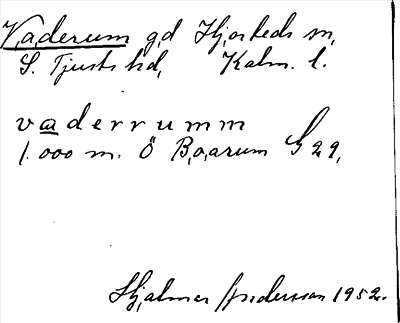 Vaderum gd Hjorteds sn,
S. Tjusts hd, Kalm. l.
vaderrumm
1.000 m. Ö Baarum G 29,
Hjalmar Andersson 1952.